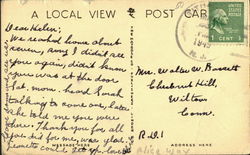 A LOCAL VIEW
POST CAR
Dear Helen;
We reached home about
seven, sorry I didn't see
you again, didn't know
you was at the door
that, mom heard Sarah
talking to some one, later
she told me you were
there. Thank you for all
you did for me, was glad
could get
Mrs. Walter W. Bassett
Chestnut Hill,
Wilton
Conn.
R.D.1
1 CENT 1
MESSAGE HERE
ADDRESS HERE
Alice